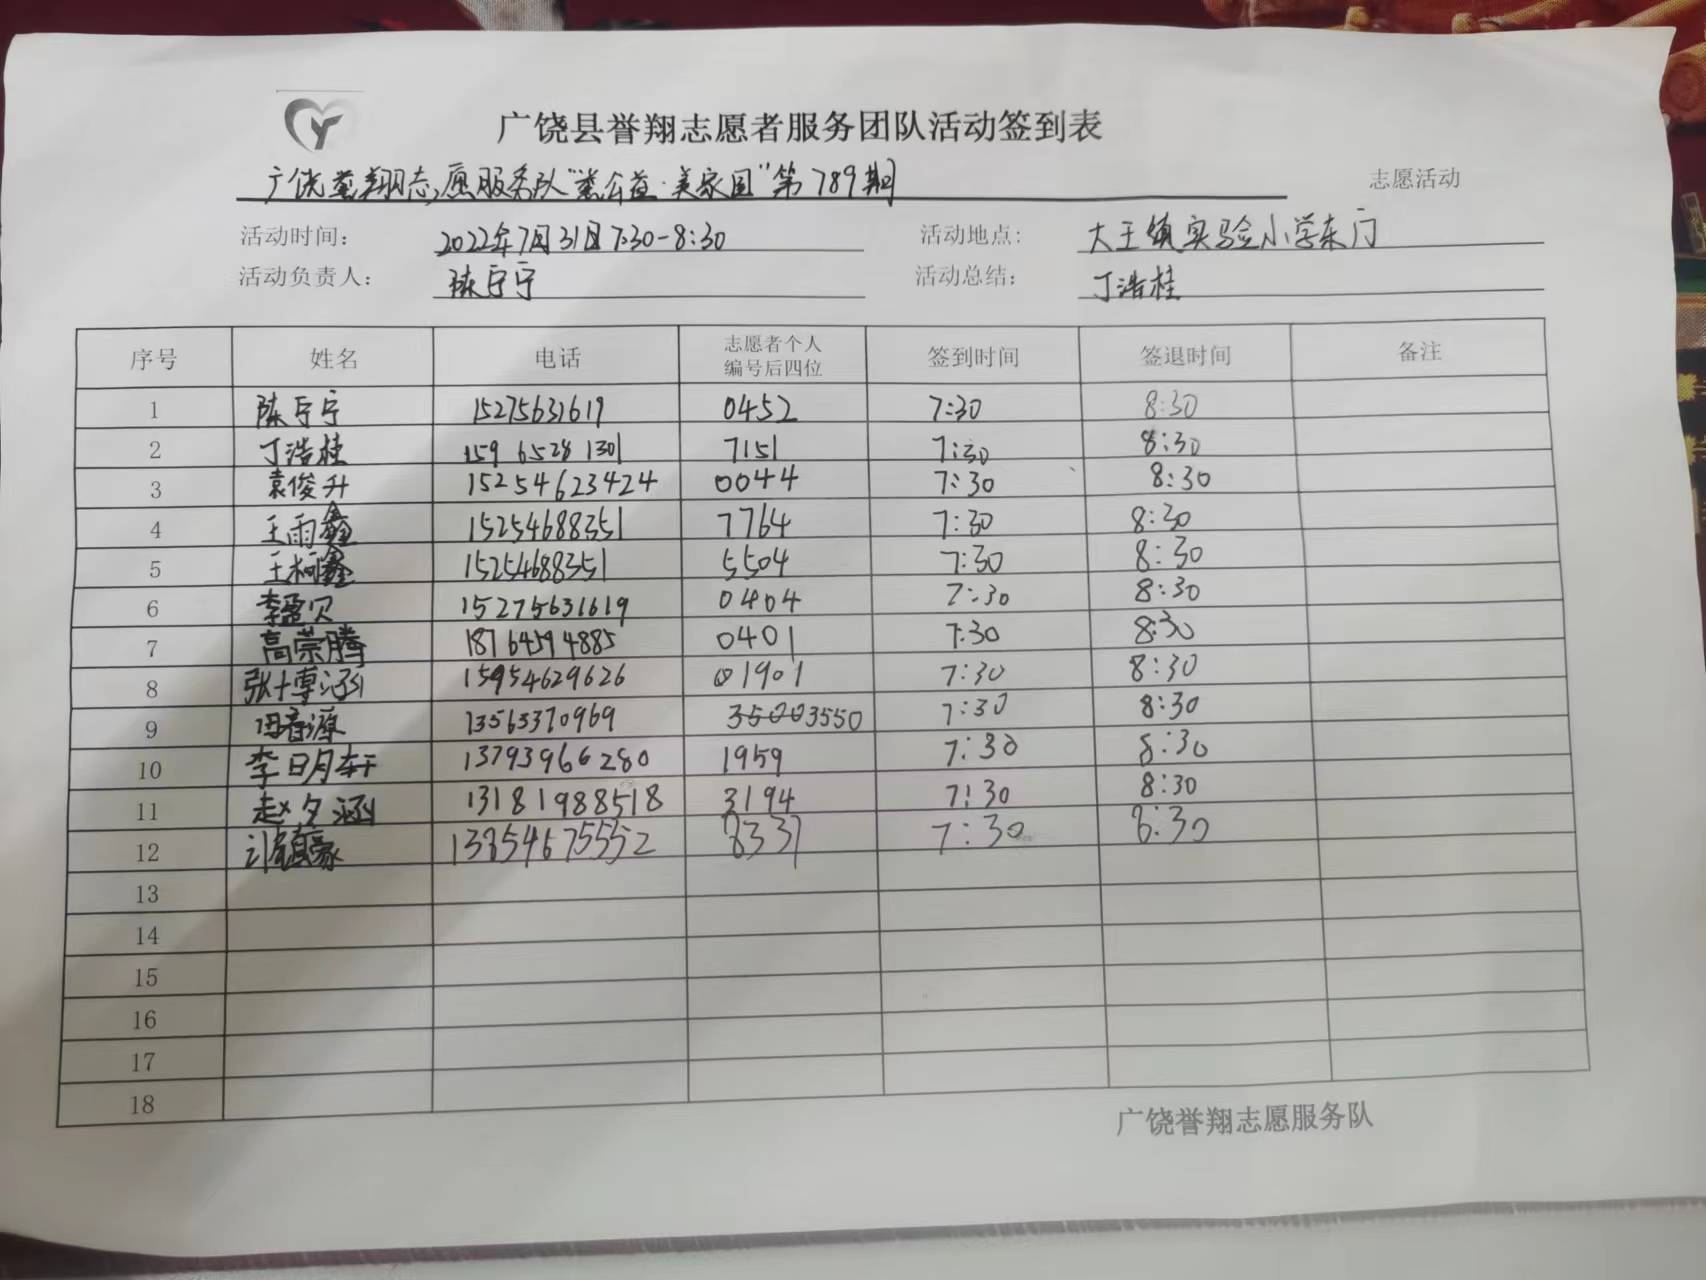 广饶县誉翔志愿者服务团队活动签到表
广饶誉翔志愿服务队"公益·美家园"第789期 志愿活动
活动时间： 2022年7月31日7:30-8:30 活动地点： 大王镇实验小学东门
活动负责人： 陈宁宁 活动总结： 丁浩桂
序号 姓名 电话 志愿者个人编号后四位 签到时间 签退时间 备注
1 陈宁宁 15275631619 0452 7:30 8:30
2 丁浩桂 15965281301 7151 7:30 8:30
3 袁俊升 15254623424 0044 7:30 8:30
4 王雨鑫 15254688351 7764 7:30 8:30
5 王柯鑫 15254688351 5504 7:30 8:30
6 李盈贝 15275631619 0404 7:30 8:30
7 高荣腾 18764594885 0401 7:30 8:30
8 张博涵 15954629626 01901 7:30 8:30
9 田源 13563370969 3550 7:30 8:30
10 李明轩 13793966280 1959 7:30 8:30
11 赵夕涵 13181988518 3194 7:30 8:30
12 13854675552 8331 7:30 8:30
13
14
15
16
17
18
广饶誉翔志愿服务队